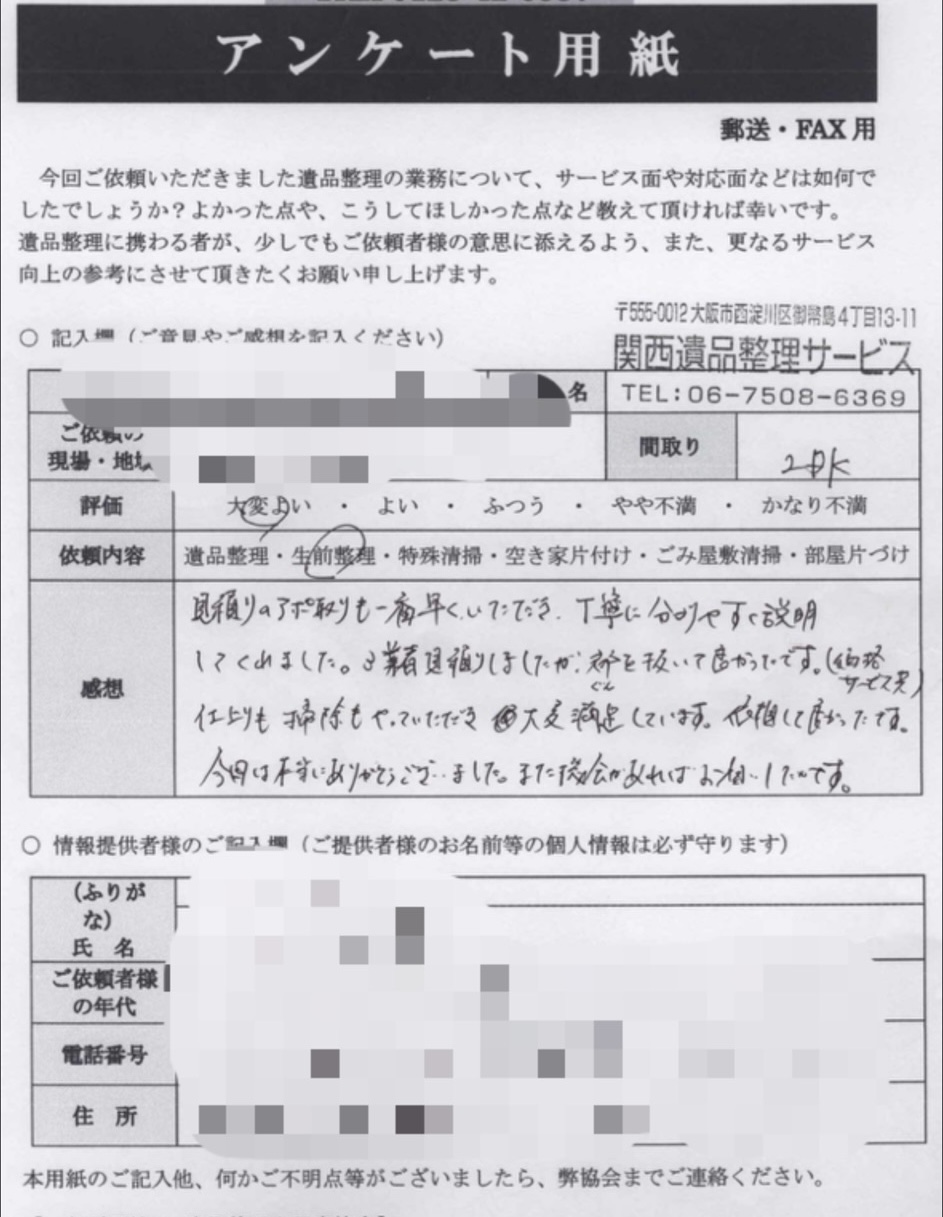 アンケート用紙
郵送・FAX 用
今回ご依頼いただきました遺品整理の業務について、サービス面や対応面などは如何で
したでしょうか？よかった点や、こうしてほしかった点など教えて頂ければ幸いです。
遺品整理に携わる者が、少しでもご依頼者様の意思に添えるよう、また、更なるサービス
向上の参考にさせて頂きたくお願い申し上げます。
〒555-0012 大阪市西淀川区御幣島4丁目13-11
○ 記入欄（ご意見やご感想を記入ください）
関西遺品整理サービス
名
TEL：06-7508-6369
ご依頼の
現場・地域
間取り
2DK
評価
大変よい ・ よい ・ ふつう ・ やや不満 ・ かなり不満
依頼内容
遺品整理・生前整理・特殊清掃・空き家片付け・ごみ屋敷清掃・部屋片づけ
感想
見積りのアポ取りも一番早くいただき、丁寧に分かりやすく説明
してくれました。3業者見積りしましたが、群を抜いて良かったです。(価格
ぐん
サービス
仕上りも掃除もやっていただき 大変満足しています。依頼して良かったです。
今回は本当にありがとうございました。また機会があればお願いしたいです。
○ 情報提供者様のご記入欄（ご提供者様のお名前等の個人情報は必ず守ります）
（ふりが
な）
氏 名
ご依頼者様
の年代
電話番号
住 所
本用紙のご記入他、何かご不明点等がございましたら、弊協会までご連絡ください。